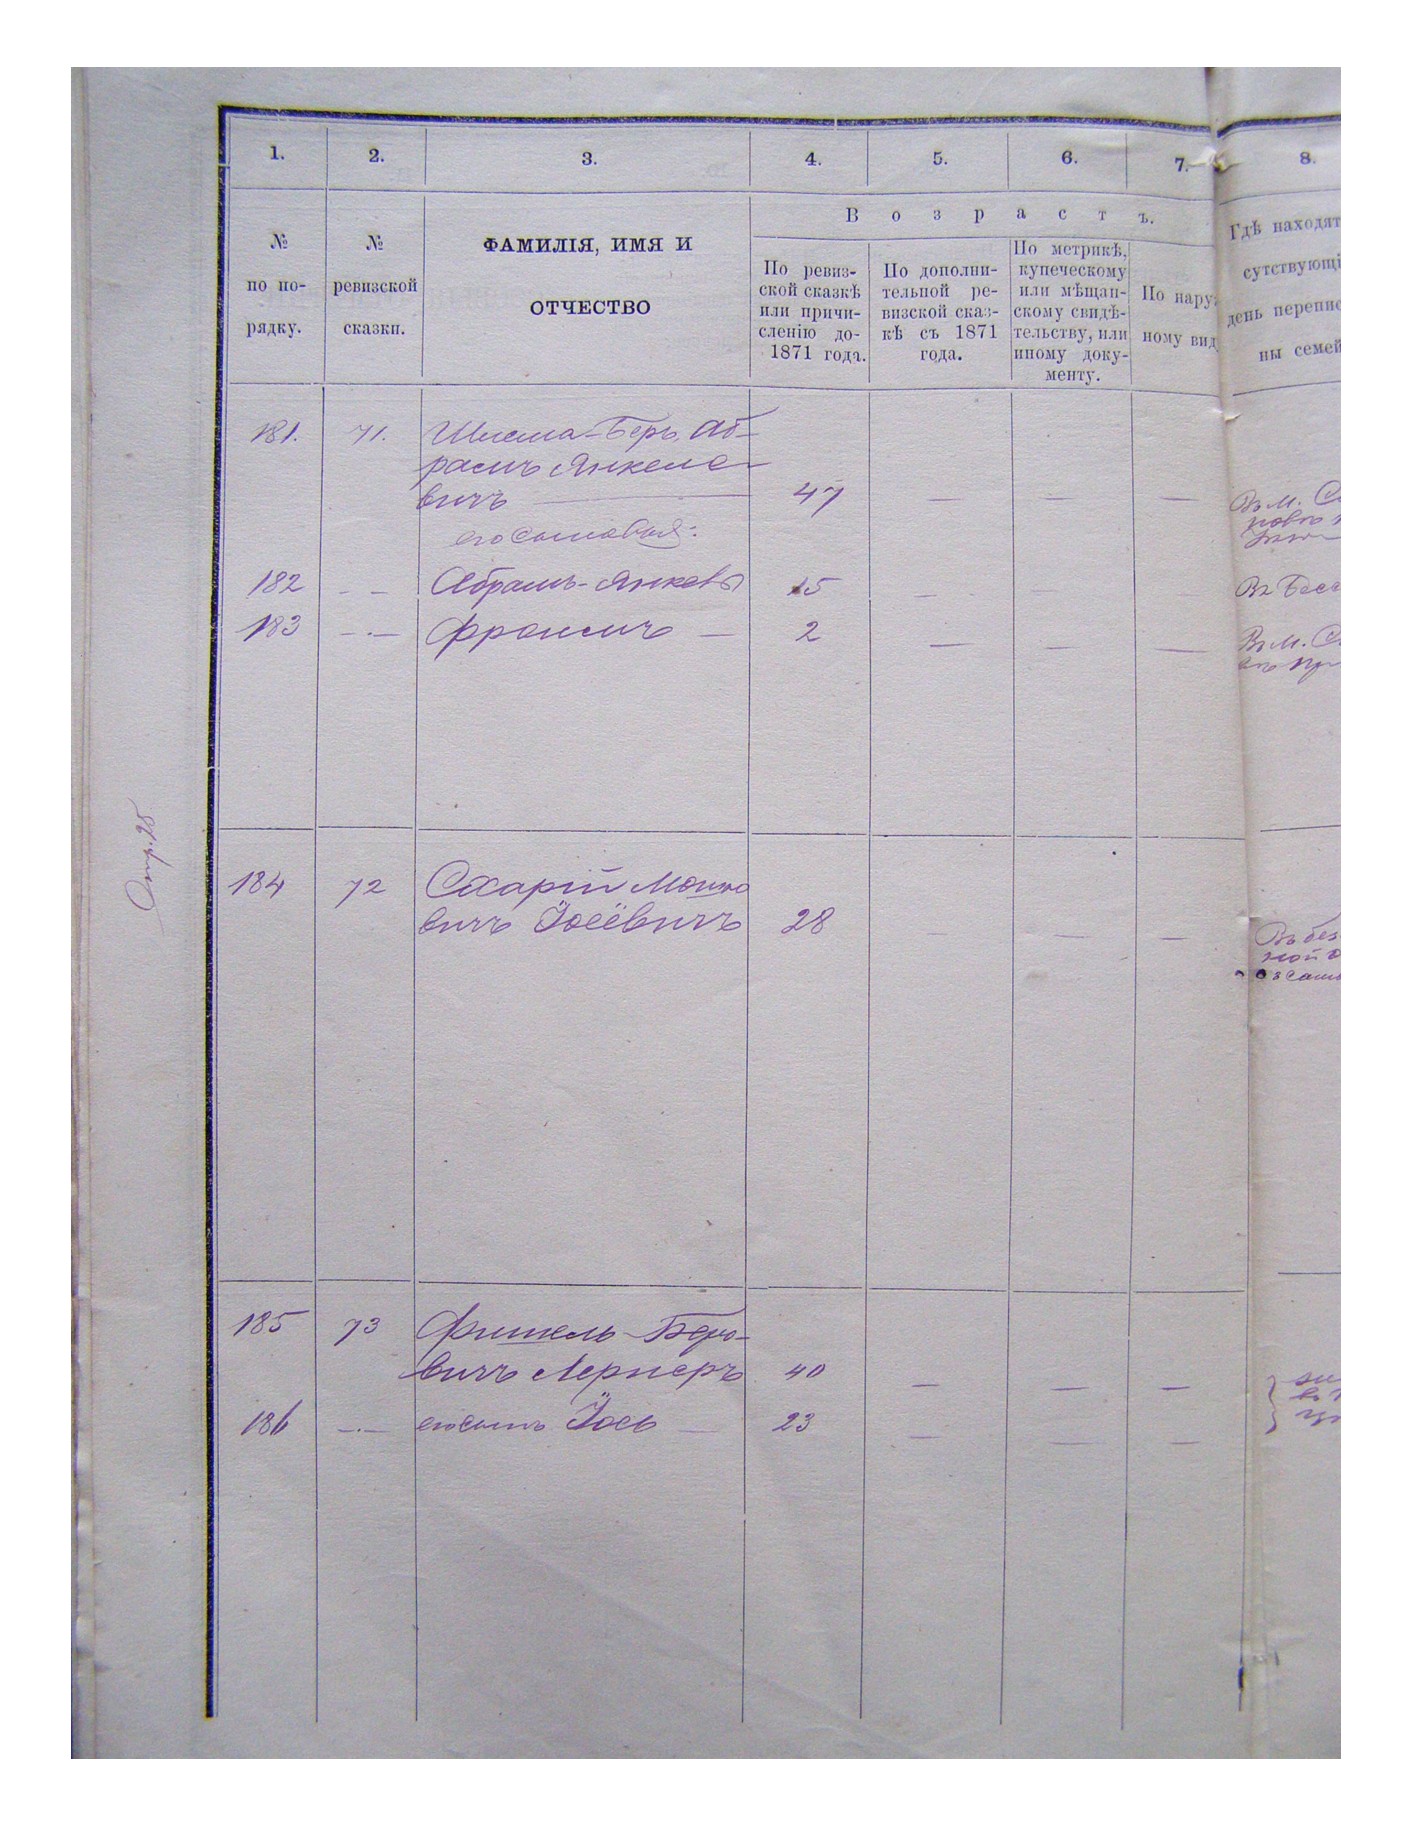 1. 2. 3. 4. 5. 6. 7. 8.
Возрастъ.
№ по порядку.
№ ревизской сказки.
ФАМИЛІЯ, ИМЯ И
ОТЧЕСТВО
По ревиз-
ской сказкѣ
или причи-
сленію до-
1871 года.
По дополни-
тельной ре-
визской сказ-
кѣ съ 1871
года.
По метрикѣ,
купеческому
или мѣщан-
скому свидѣ-
тельству, или
иному доку-
менту.
По нару
ному вид
Гдѣ находят
сутствующі
день перепис
ны семей
181. 71. Шлема-Беръ Аб-
рамъ Янкеле-
вичъ 47 — — —
Въ м.
его сыновья:
182 - - Абрамъ-Янкель 15 — —
Въ
183 -.- Фроимъ — 2 — — —
Въ м.
Стр. 25
184 72 Сахарій Мошко
вичъ Іосевичъ 28 — — —
Въ без
ной
185 73 Фишель Беро-
вичъ Лернеръ 40 — — —
186 -.- его сынъ Іось — 23 — — —